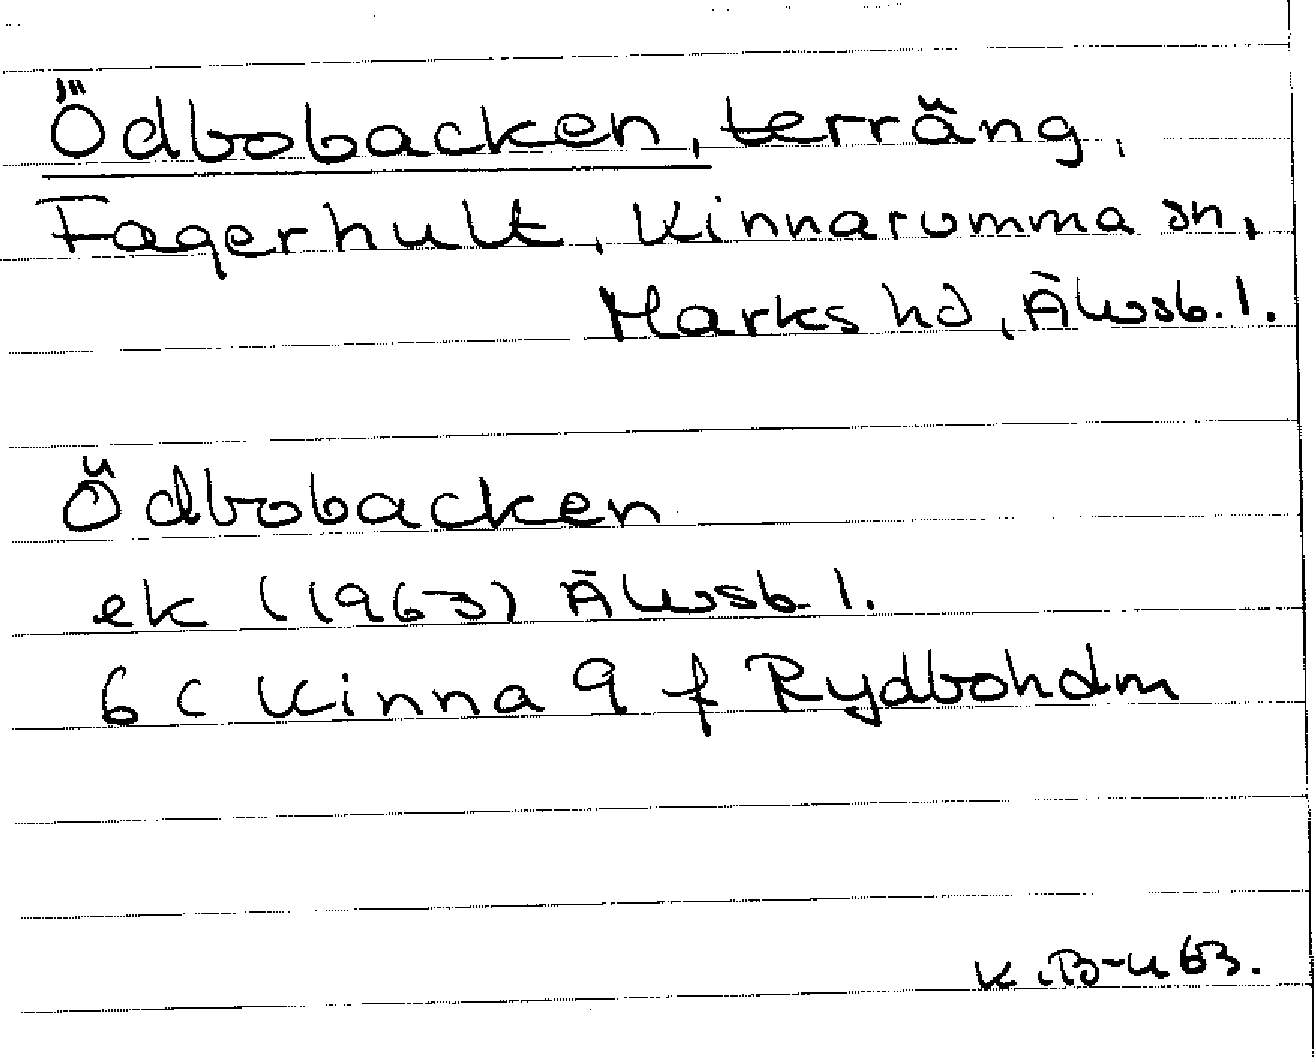 Ödbobacken, terräng,
Fagerhult, Kinnarumma sn,
Marks hd, Älvsb. l.
Ödbobacken
ek (1963) Älvsb. l.
6 C Kinna 9 f Rydboholm
K.B-n 63.